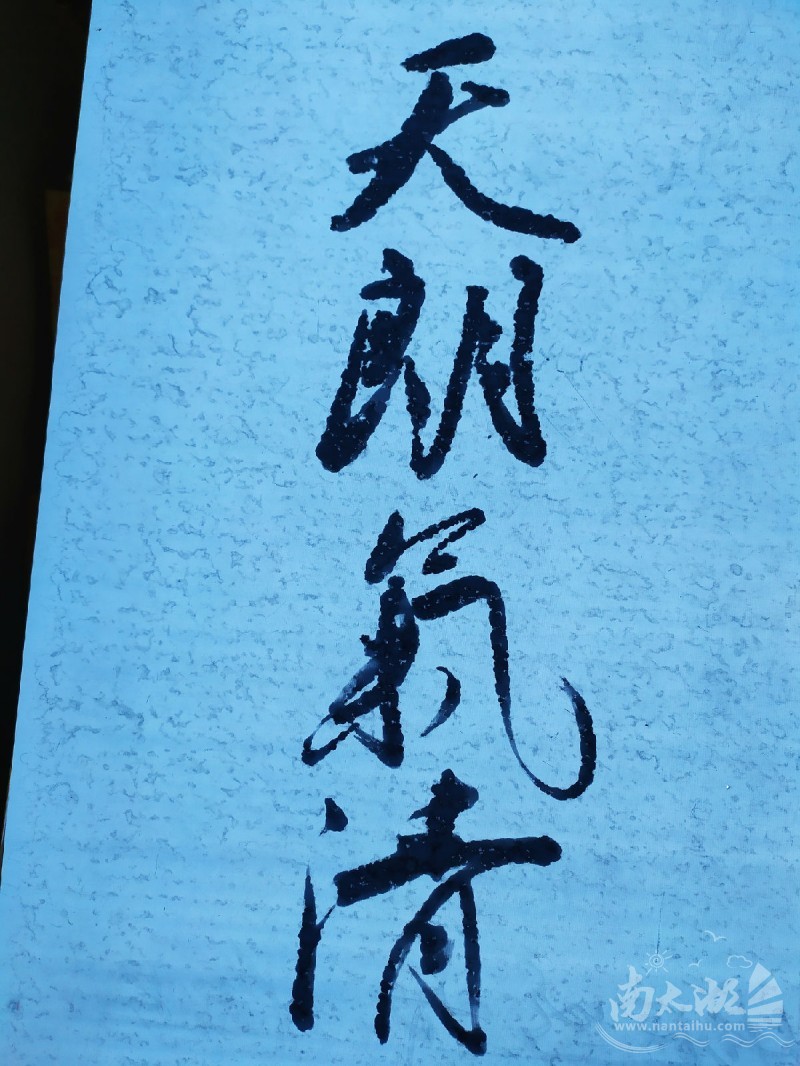 天朗氣清
南太湖
www.nantaihu.com